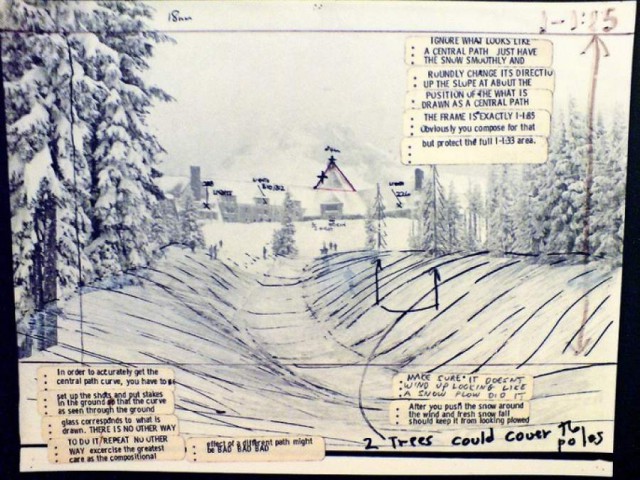 18mm
1-1:85
IGNORE WHAT LOOKS LIKE
A CENTRAL PATH JUST HAVE
THE SNOW SMOOTHLY AND
ROUNDLY CHANGE ITS DIRECTIO
UP THE SLOPE AT ABOUT THE
POSITION OF THE WHAT IS
DRAWN AS A CENTRAL PATH
THE FRAME IS EXACTLY 1-1.85
Obviously you compose for that
but protect the full 1-1:33 area.
In order to accurately get the
central path curve, you have to go
set up the shots and put stakes
in the ground so that the curve
as seen through the ground
glass corresponds to what is
drawn. THERE IS NO OTHER WAY
TO DO IT/REPEAT NO OTHER
WAY excercise the greatest
care as the compositional
effect of a different path might
be BAD BAD BAD
MAKE SURE IT DOESNT
WIND UP LOOKING LIKE
A SNOW PLOW DID IT
After you push the snow around
the wind and fresh snow fall
should keep it from looking plowed
2 Trees could cover the
poles